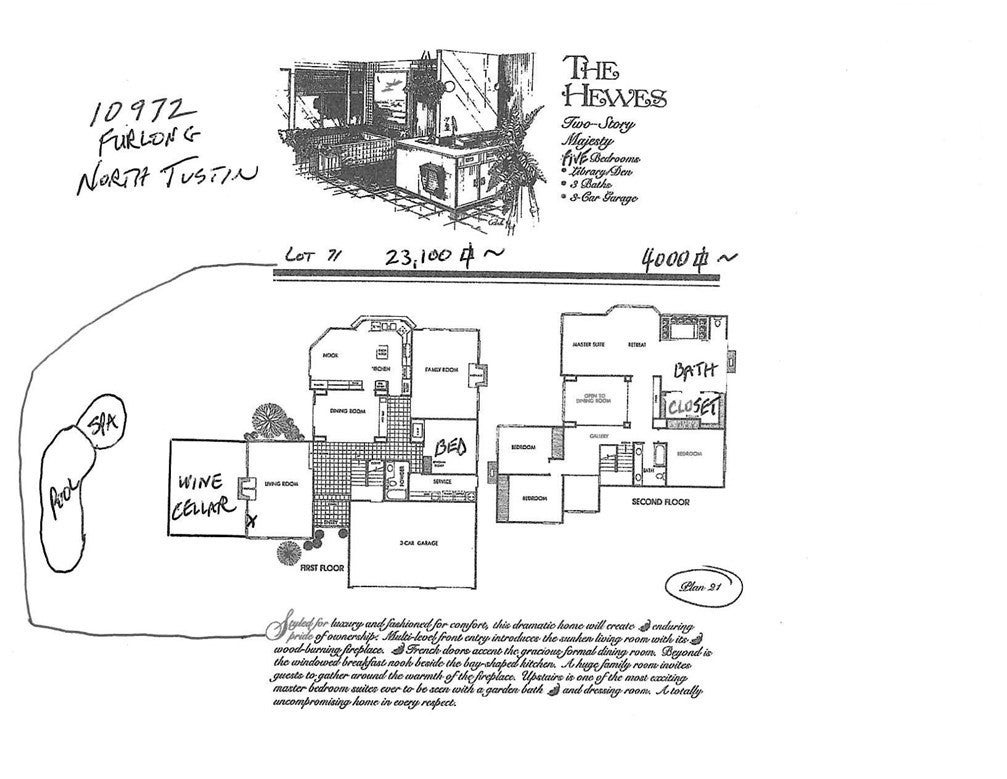 10972
FURLONG
NORTH TUSTIN
THE
HEWES
Two-Story
Majesty
FIVE Bedrooms
• Library/Den
• 3 Baths
• 3-Car Garage
LOT 71 23,100 ~ 4000 ~
NOOK
KITCHEN
FAMILY ROOM
DINING ROOM
BED
SERVICE
POWDER
LIVING ROOM
WINE
CELLAR
X
ENTRY
3-CAR GARAGE
FIRST FLOOR
SPA
POOL
MASTER SUITE
RETREAT
BATH
CLOSET
OPEN TO
DINING ROOM
GALLERY
BEDROOM
BATH
BEDROOM
BEDROOM
SECOND FLOOR
Plan 21
Styled for luxury and fashioned for comfort, this dramatic home will create enduring
pride of ownership. Multi-level front entry introduces the sunken living room with its
wood-burning fireplace. French doors accent the gracious formal dining room. Beyond is
the windowed breakfast nook beside the bay-shaped kitchen. A huge family room invites
guests to gather around the warmth of the fireplace. Upstairs is one of the most exciting
master bedroom suites ever to be seen with a garden bath and dressing room. A totally
uncompromising home in every respect.